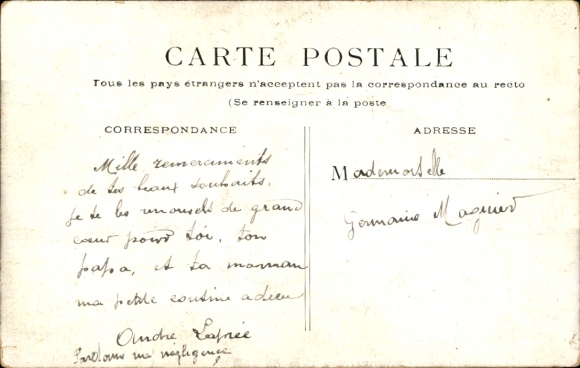 CARTE POSTALE
Tous les pays étrangers n'acceptent pas la correspondance au recto
(Se renseigner à la poste
CORRESPONDANCE
ADRESSE
Mille remerciments
de tes beaux souhaits,
je te les renouvels de grand
cœur pour toi, ton
papa, et ta maman
ma petite cousine adieu
André
Pardonne ma négligence
Mademoiselle
Germaine